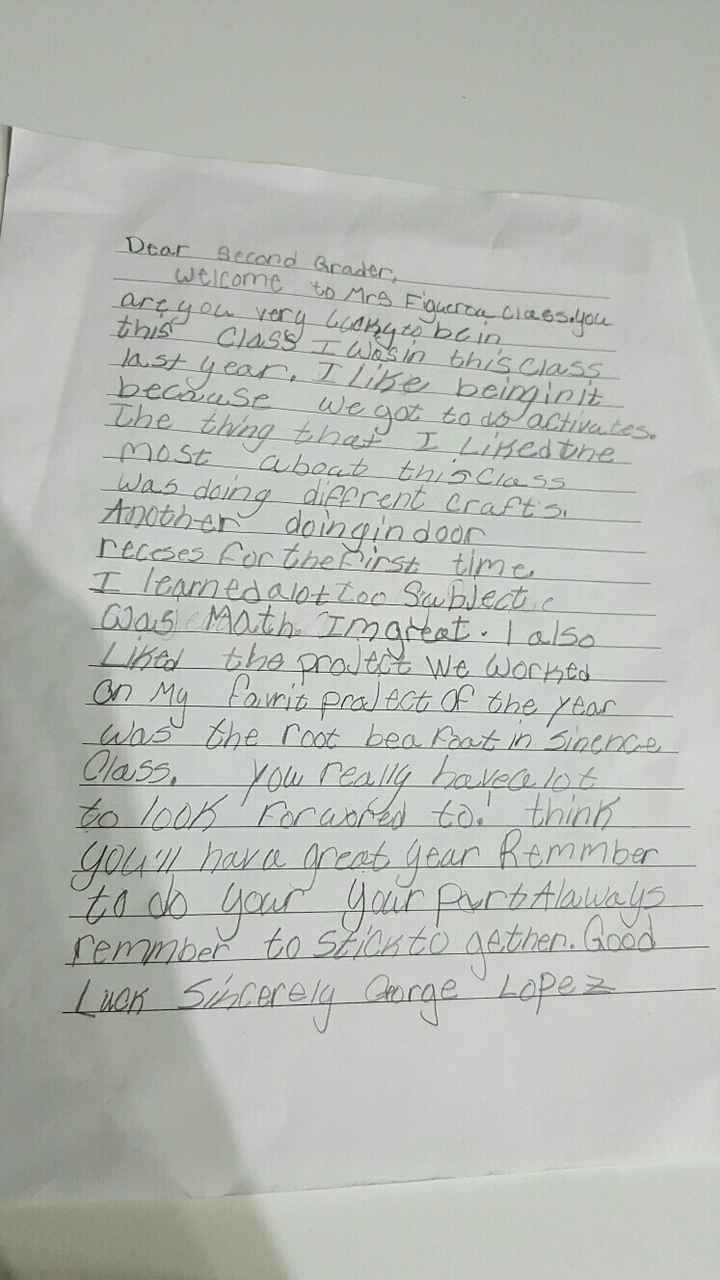 Dear Second Grader,
Welcome to Mrs Figueroa class.you
are you very lucky to be in
this class I was in this class
last year. I like being in it
because we got to do activates.
The thing that I liked the
most about this class
was doing diffrent crafts.
Another doing indoor
receses for the first time
I learned a lot too Subject
was Math. Im great. I also
Liked the project we worked
on My favrit project of the year
was the root bea float in Sinence
Class. you really have a lot
to look forworted to. I think
you'll hava great year Remmber
to do your your part Alaways
remmber to stick to gether. Good
Luck Sincerely George Lopez